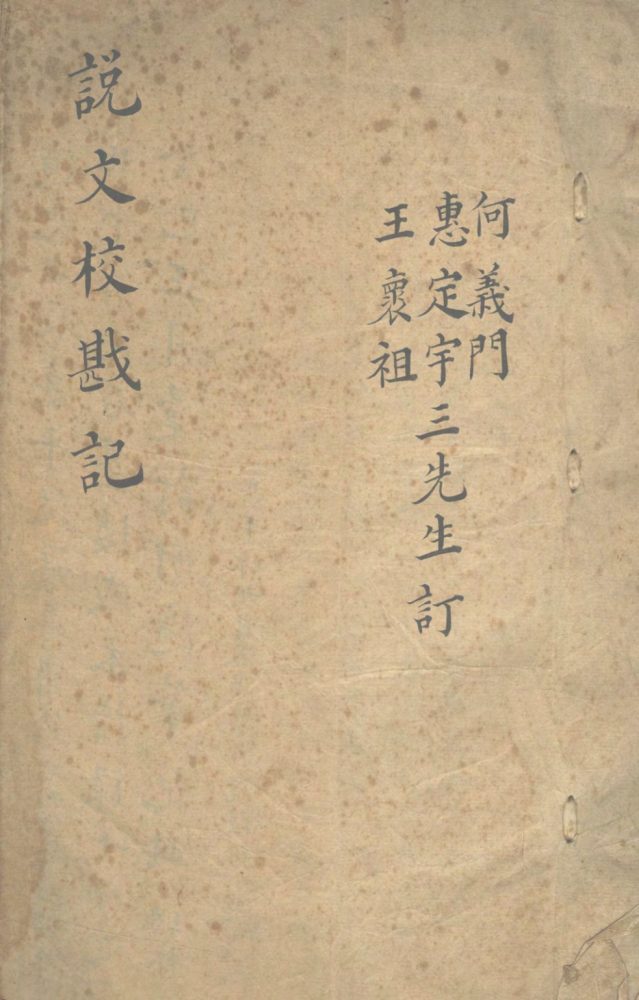 何義門
惠定宇三先生訂
王褱祖
説文校戡記